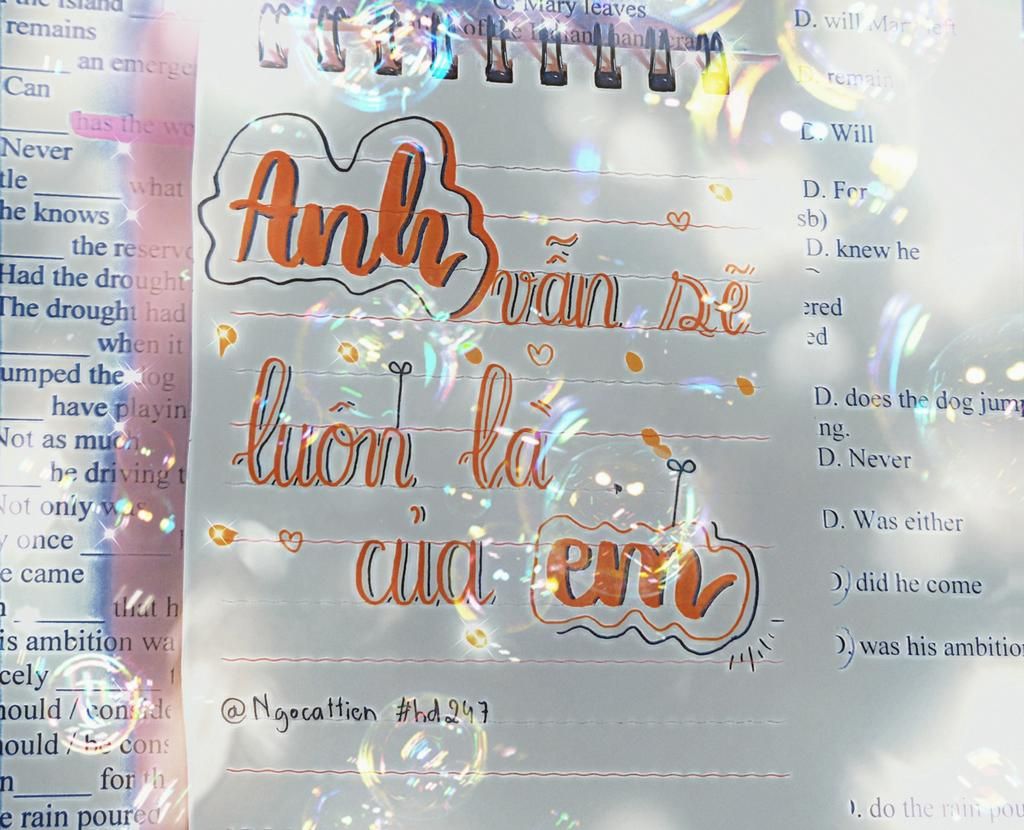 the Island
remains
an emerge
Can
has the wo
Never
tle ______ what
he knows
______ the reserv
Had the drought
The drought had
______ when it
umped the dog
____ have playin
Not as much
____ he driving t
Not only was
y once ______
e came
____ that h
is ambition wa
cely ______
hould / conside
hould / be cons
n______ for th
e rain poured
C. Mary leaves
of the
Anh
vẫn sẽ
luôn là
của em
@Ngocattien #hd247
D. will Mary left
D. remain
D. Will
D. For
sb)
D. knew he
ered
ed
D. does the dog jump
ng.
D. Never
D. Was either
D. did he come
D. was his ambition
D. do the rain pou